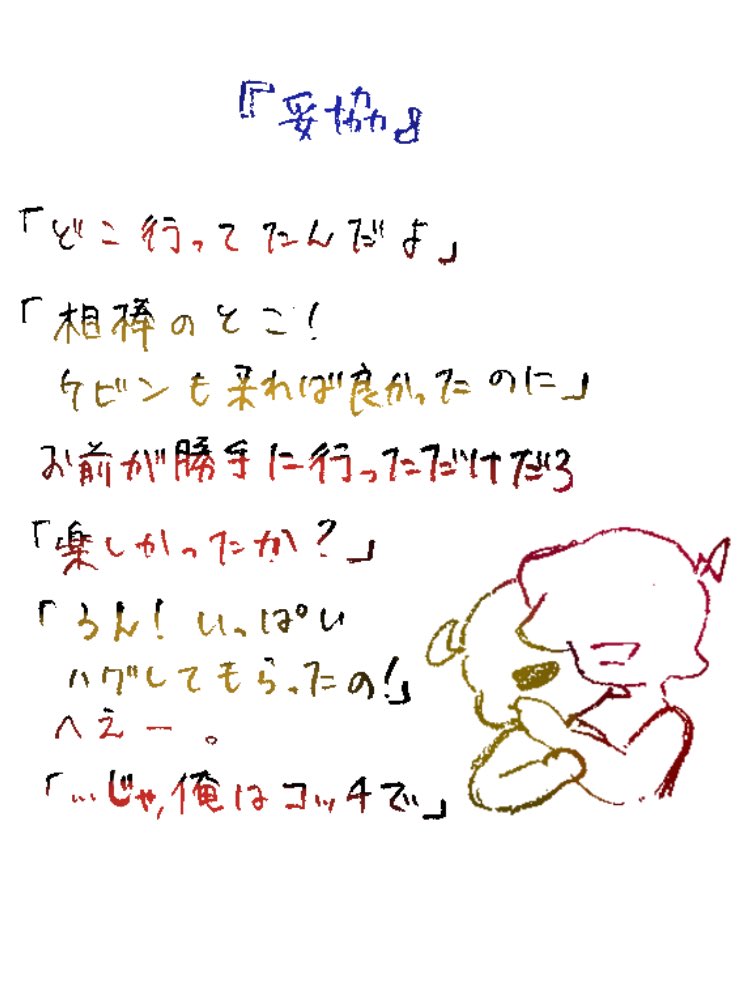 『妥協』
「どこ行ってたんだよ」
「相棒のとこ!
ケビンも来れば良かったのに」
お前が勝手に行っただけだろ
「楽しかったか?」
「うん!いっぱい
ハグしてもらったの!」
へえー。
「…じゃ,俺はコッチで」